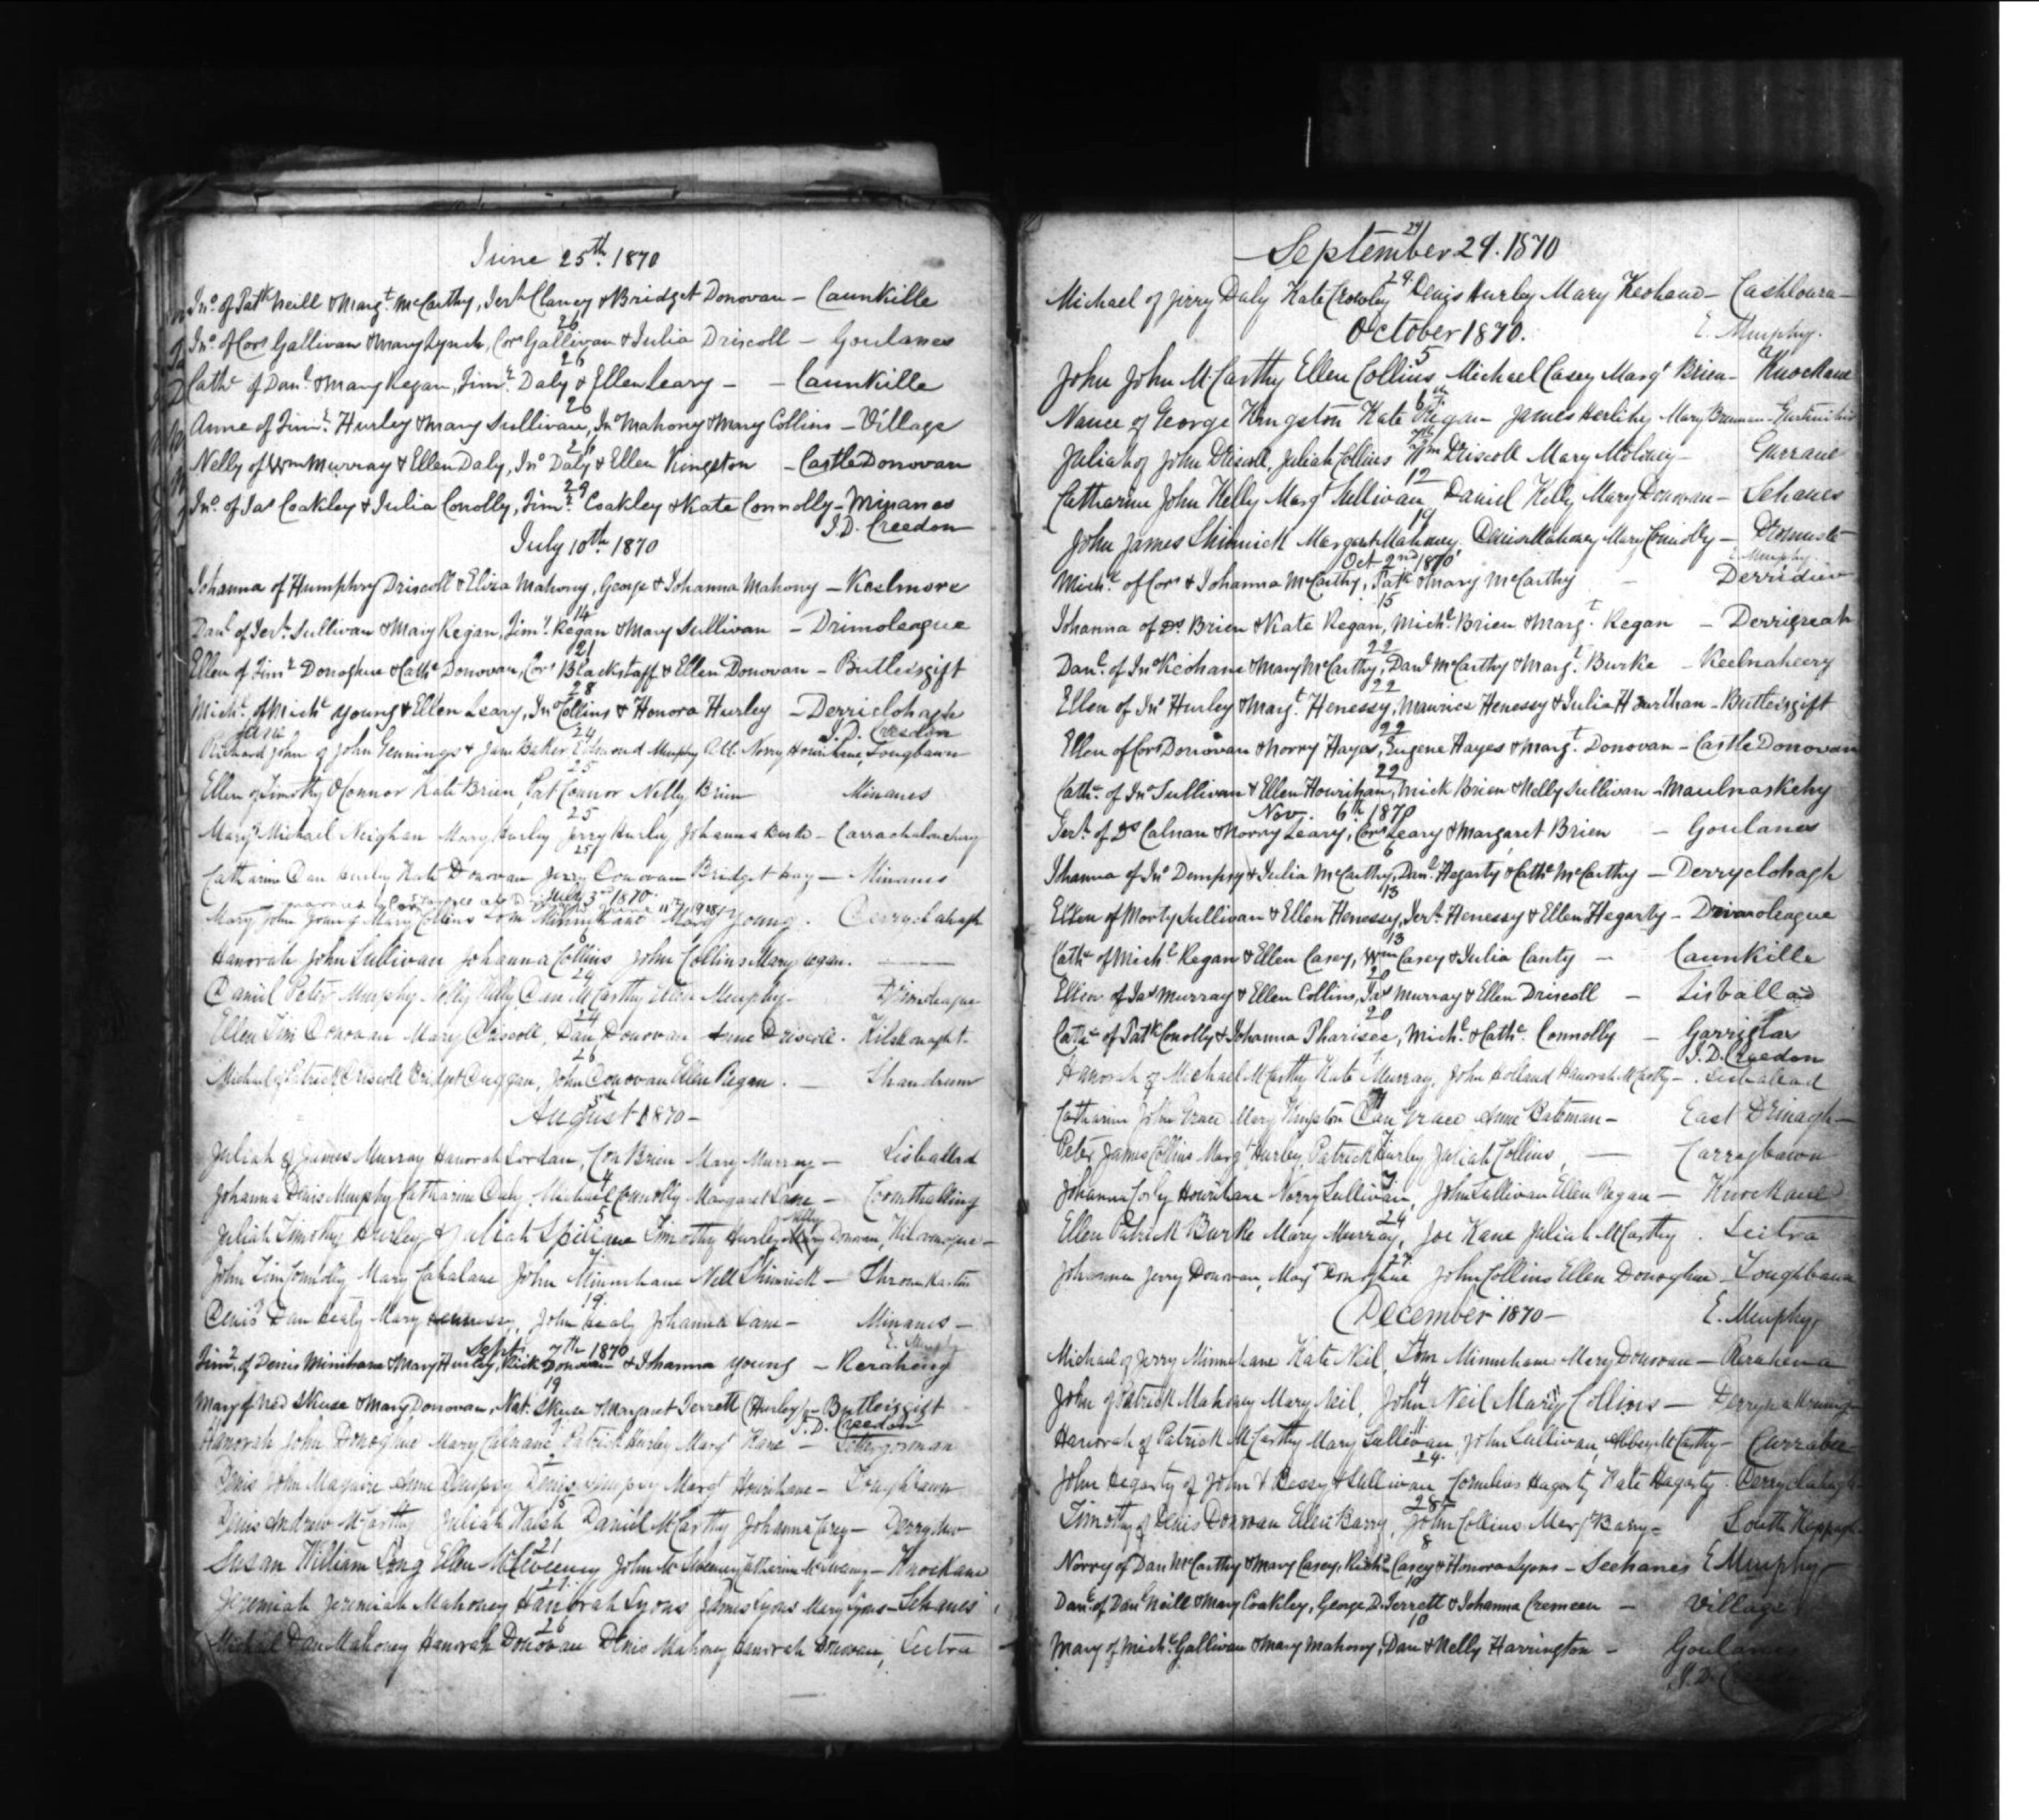 June 25th. 1870
Jno. of Patk Neill & Margt. McCarthy, Jerh Clancy & Bridget Donovan - Caunkille
26
Jno. of Cors Gallivan & Mary Lynch, Cors Gallivan & Julia Driscoll - Goulanes
26
Cathe of Danl. & Mary Regan, Timy. Daly & Ellen Leary - - Caunkille
26
Anne of Timy. Hurley & Mary Sullivan, Jno Mahony & Mary Collins - Village
26
Nelly of Wm Murray & Ellen Daly, Jno Daly & Ellen Kingston - Castle Donovan
29
Jno. of Jas Coakley & Julia Conolly, Timy. Coakley & Kate Connolly - Minanes
J.D. Creedon
July 10th. 1870
Johanna of Humphry Driscoll & Eliza Mahony, George & Johanna Mahony - Keelmore
14
Danl of Jerh. Sullivan & Mary Regan, Timy. Regan & Mary Sullivan - Drimoleague
21
Ellen of Timy Donoghue & Cathe Donovan, Cors Blackstaff & Ellen Donovan - Butlersgift
28
Michl. of Michl Young & Ellen Leary, Jno Collins & Honora Hurley - Derriclohagh
June 24 J.D. Creedon
Richard John of John Jennings & Jane Baker Edmond Murphy Norry Hourihane, Longbawn
25
Ellen of Timothy O'Connor Kate Brien Pat Connor Nelly Brien Minanes
25
Mary Michael Neighan Mary Hurley Jerry Hurley Johanna
25
Catharine Dan Hurley Kate Donovan Jerry Donovan Bridget - Minanes
July 3rd 1870
Mary John Young Mary Collins Tom Minnehane Mary Young. Derryclahagh
Hanorah John Sullivan Johanna Collins John Collins Mary Regan. -
24
Daniel Peter Murphy Nelly Dan McCarthy Ellen Murphy - Drimoleague
24
Ellen Tim Donovan Mary Driscoll, Dan Donovan Anne Driscoll. Kilskonaght.
26
Michael of Patrick Driscoll Bridget Duggan, John Donovan Ellen Regan. - Shandrum
August 1870 -
Juliah of James Murray Hanorah Lordan, Con Brien Mary Murray - Lisballad
4
Johanna Denis Murphy Catharine Daly Michael Connolly Margaret Lane -
5
Juliah Timothy Hurley & Juliah Spillane Timothy Hurley Donovan,
7
John Tim Connolly Mary Cahalane John Minnehane Nell Shinnick -
19
Denis Dan Healy Mary John Healy Johanna Lane - Minanes -
Sept. 7th 1870 E. Murphy
Timy. of Denis Minihane & Mary Hurley, Rick Donovan & Johanna Young - Reraheny
19
Mary of Ned Skuse & Mary Donovan, Nat. Skuse & Margaret Jerrett (Hurley) - Butlersgift
J.D. Creedon
Hanorah John Donoghue Mary Patrick Hurley Margt Kane -
2
Denis John Maguire Anne Dempsey Denis Dempsey Margt Hourihane - Loughbawn
15
Denis Andrew McCarthy Juliah Walsh Daniel McCarthy Johanna Carey -
21
Susan William Long Ellen McSweeney John McSweeney Catharine McSweeney - Knockane
21
Jeremiah Jeremiah Mahoney Hanorah Lyons James Lyons Mary Lyons - Sehanes
26
Michael Dan Mahoney Hanorah Donovan Denis Mahoney Hanorah Donovan, Leitra
September 29. 1870
29
Michael of Jerry Daly Kate Crowley Denis Hurley Mary Keohane - Cashloura -
October 1870. E. Murphy.
5
John John McCarthy Ellen Collins Michael Casey Margt Brien - Knockane
6th
Nance of George Kingston Kate Regan - James Herlihy Mary
7th
Juliah of John Driscoll, Juliah Collins Wm Driscoll Mary - Gurrane
12
Catharine John Kelly Margt Sullivan, Daniel Kelly Mary Donovan - Sehanes
19
John James Shinnick Margaret Mahoney. Denis Mahoney Mary Connolly -
Oct 2nd 1870 E. Murphy.
Michl. of Cors & Johanna McCarthy, Patk & Mary McCarthy - Derriduv
15
Johanna of Ds. Brien & Kate Regan, Michl. Brien & Margt. Regan - Derrigreah
22
Danl. of Jno Keohane & Mary McCarthy, Danl McCarthy & Margt. Burke - Keelnaheery
22
Ellen of Jno Hurley & Margt. Henessy, Maurice Henessy & Julia Hourihan - Butlersgift
22
Ellen of Cors Donovan & Norry Hayes, Eugene Hayes & Margt. Donovan - Castle Donovan
29
Cathe. of Jno Sullivan & Ellen Hourihan, Mick Brien & Nelly Sullivan - Maulnaskehy
Nov. 6th 1870
Jerh. of Ds Calnan & Norry Leary, Cors Leary & Margaret Brien - Goulanes
6
Johanna of Jno Dempsy & Julia McCarthy, Danl. Hegarty & Cathe McCarthy - Derryclohagh
13
Ellen of Morty Sullivan & Ellen Henessy, Jerh. Henessy & Ellen Hegarty - Drimoleague
13
Cathe of Michl Regan & Ellen Casey, Wm Casey & Julia Canty - Caunkille
20
Ellen of Jas Murray & Ellen Collins, Jas Murray & Ellen Driscoll - Lisballad
20
Cathe of Patk Conolly & Johanna Pharisee, Michl. & Cathe. Connolly - Garriglas
J.D. Creedon
Hanorah of Michael McCarthy Kate Murray, John Holland Hanorah McCarthy - Lisbalead
Catharine John Grace Mary Kingston Dan Grace Anne Bateman - East Drinagh -
Peter James Collins Margt Hurley, Patrick Hurley Juliah Collins, - Carragbawn
Johanna Hourihane Norry Sullivan, John Sullivan Ellen Regan - Knockane
24
Ellen Patrick Burke Mary Murray, Joe Kane Juliah McCarthy. Leitra
27
Johanna Jerry Donovan, Margt Donoghue John Collins Ellen Donoghue - Loughbawn
December 1870 - E. Murphy
Michael of Jerry Minnehane Kate Neil, Tom Minnehane Mary Donovan -
4
John of Patrick Mahoney Mary Neil, John Neil Mary Collins -
11
Hanorah of Patrick McCarthy Mary Sullivan, John Sullivan, Abbey McCarthy -
24.
John Hegarty of John & Bessy Sullivan Cornelius Hagarty Kate Hagarty.
28
Timothy of Denis Donovan Ellen Barry, John Collins Margt Barry - South
8
Norry of Dan McCarthy & Mary Casey, Richd. Casey & Honora Lyons - Seehanes E Murphy
10
Danl of Danl Neill & Mary Coakley, George D. Jerrett & Johanna Cremeen - Village
10
Mary of Michl Gallivan & Mary Mahony, Dan & Nelly Harrington - Goulanes
J.D. Creedon